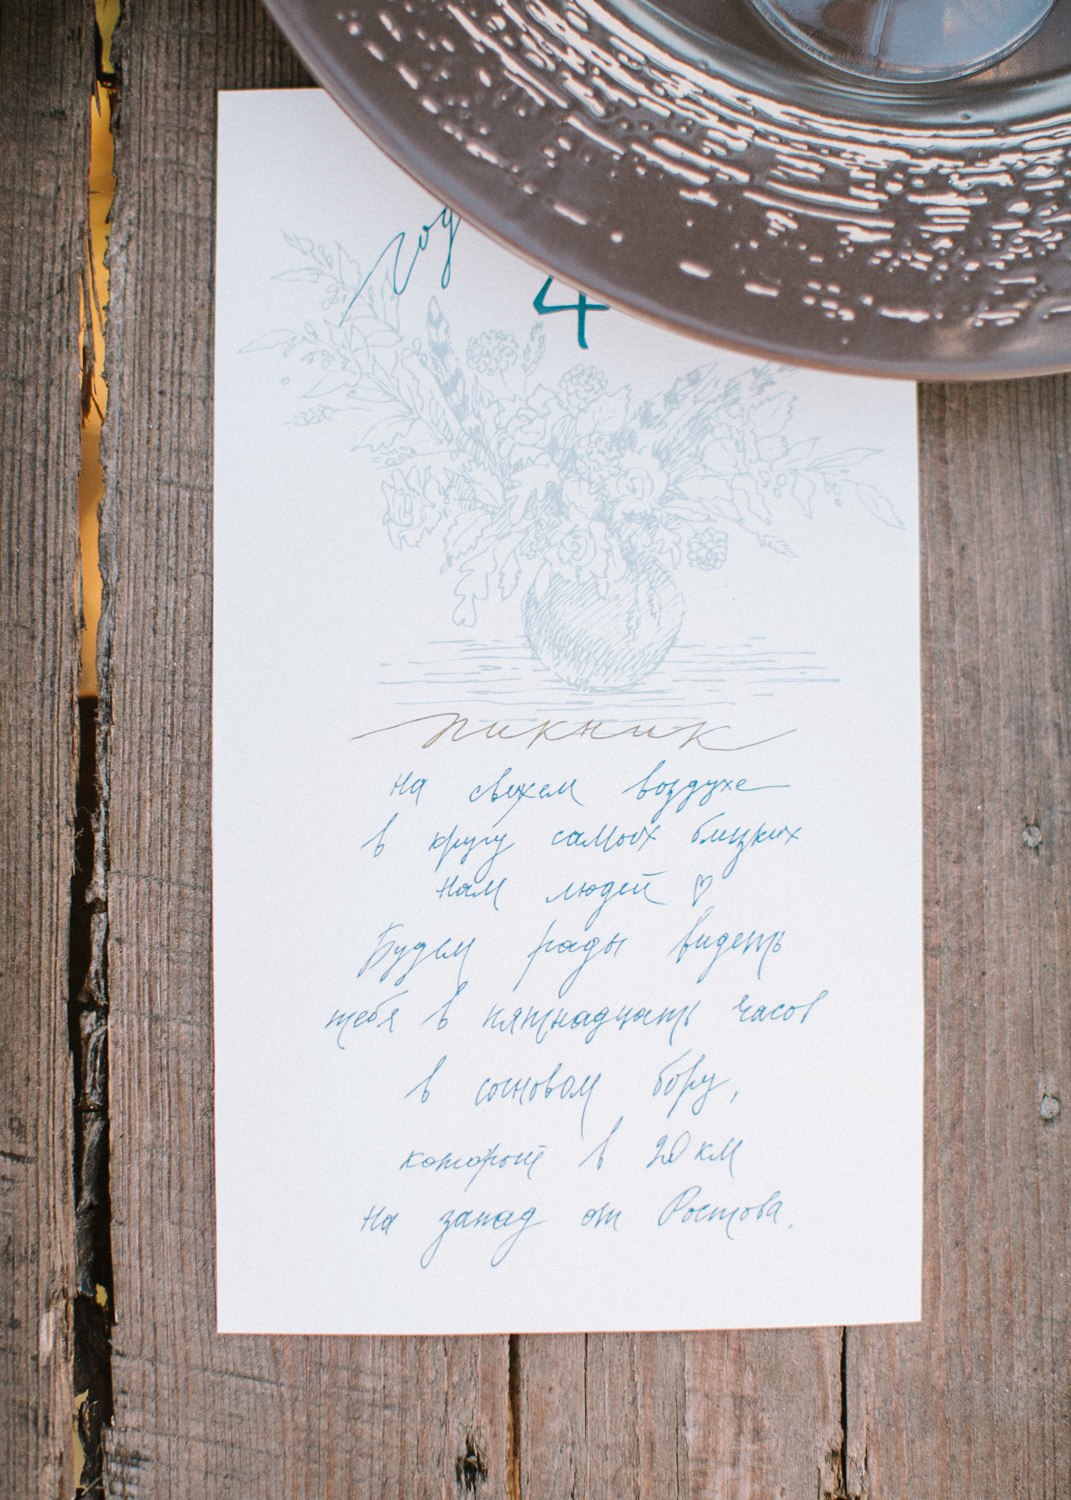 4
пикник
на свежем воздухе
в кругу самых близких
нам людей ♡
Будем рады видеть
тебя в пятнадцать часов
в сосновом бору,
который в 20 км
на запад от Ростова.